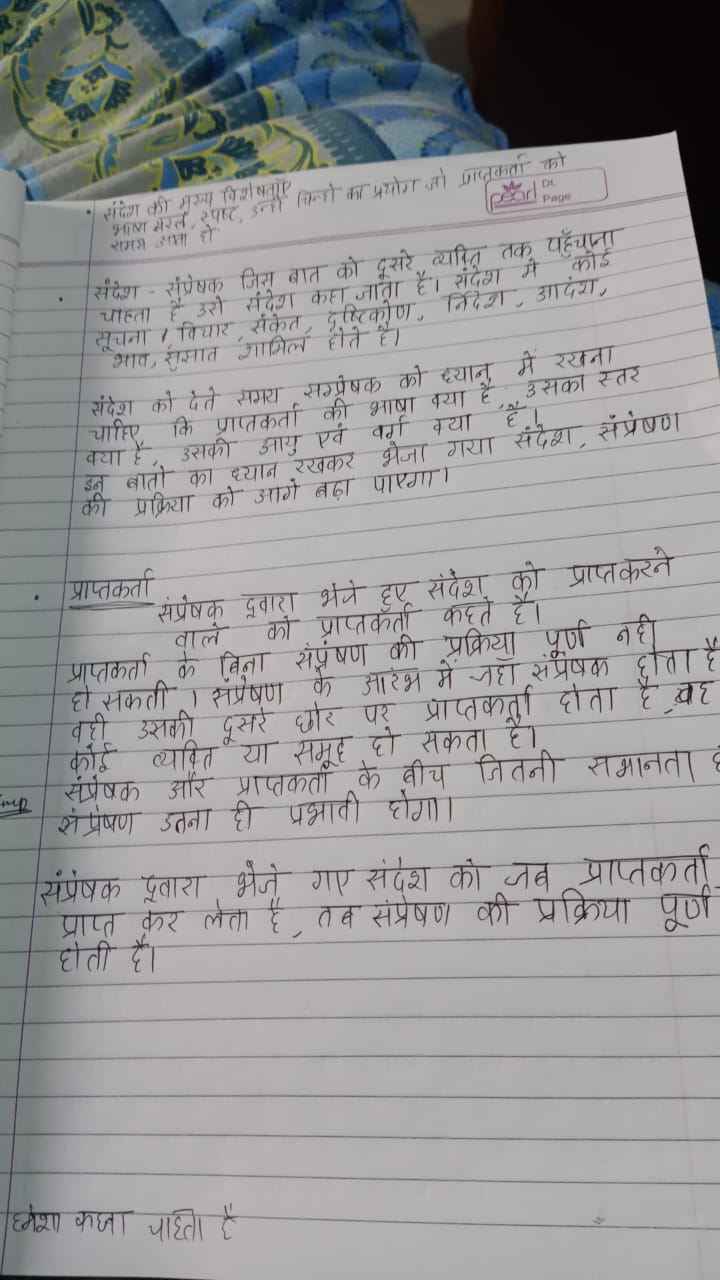 • संदेश की मुख्य विशेषताएं
भाषा सरल, स्पष्ट, उन्ही चिन्हो का प्रयोग जो प्राप्तकर्ता को
समझ आता हो
pearl Dt.
Page
• संदेश - संप्रेषक जिस बात को दूसरे व्यक्ति तक पहुँचाना
चाहता है उसे संदेश कहा जाता है। संदेश में कोई
सूचना, विचार, संकेत, दृष्टिकोण, निर्देश, आदेश,
भाव, शामिल होते है।
संदेश को देते समय सम्प्रेषक को ध्यान में रखना
चाहिए कि प्राप्तकर्ता की भाषा क्या है, उसका स्तर
क्या है, उसकी आयु एवं वर्ग क्या है।
इन बातो का ध्यान रखकर भेजा गया संदेश, संप्रेषण
की प्रक्रिया को आगे बढ़ा पाएगा।
• प्राप्तकर्ता
संप्रेषक द्वारा भेजे हुए संदेश को प्राप्तकरने
वाले को प्राप्तकर्ता कहते है।
प्राप्तकर्ता के बिना संप्रेषण की प्रक्रिया पूर्ण नही
हो सकती। संप्रेषण के आरंभ में जहाँ संप्रेषक होता है
वही उसकी दूसरे छोर पर प्राप्तकर्ता होता है, वह
कोई व्यक्ति या समूह हो सकता है।
संप्रेषक और प्राप्तकर्ता के बीच जितनी समानता है
imp संप्रेषण उतना ही प्रभावी होगा।
संप्रेषक द्वारा भेजे गए संदेश को जब प्राप्तकर्ता
प्राप्त कर लेता है, तब संप्रेषण की प्रक्रिया पूर्ण
होती है।
हमेशा कहना चाहता है